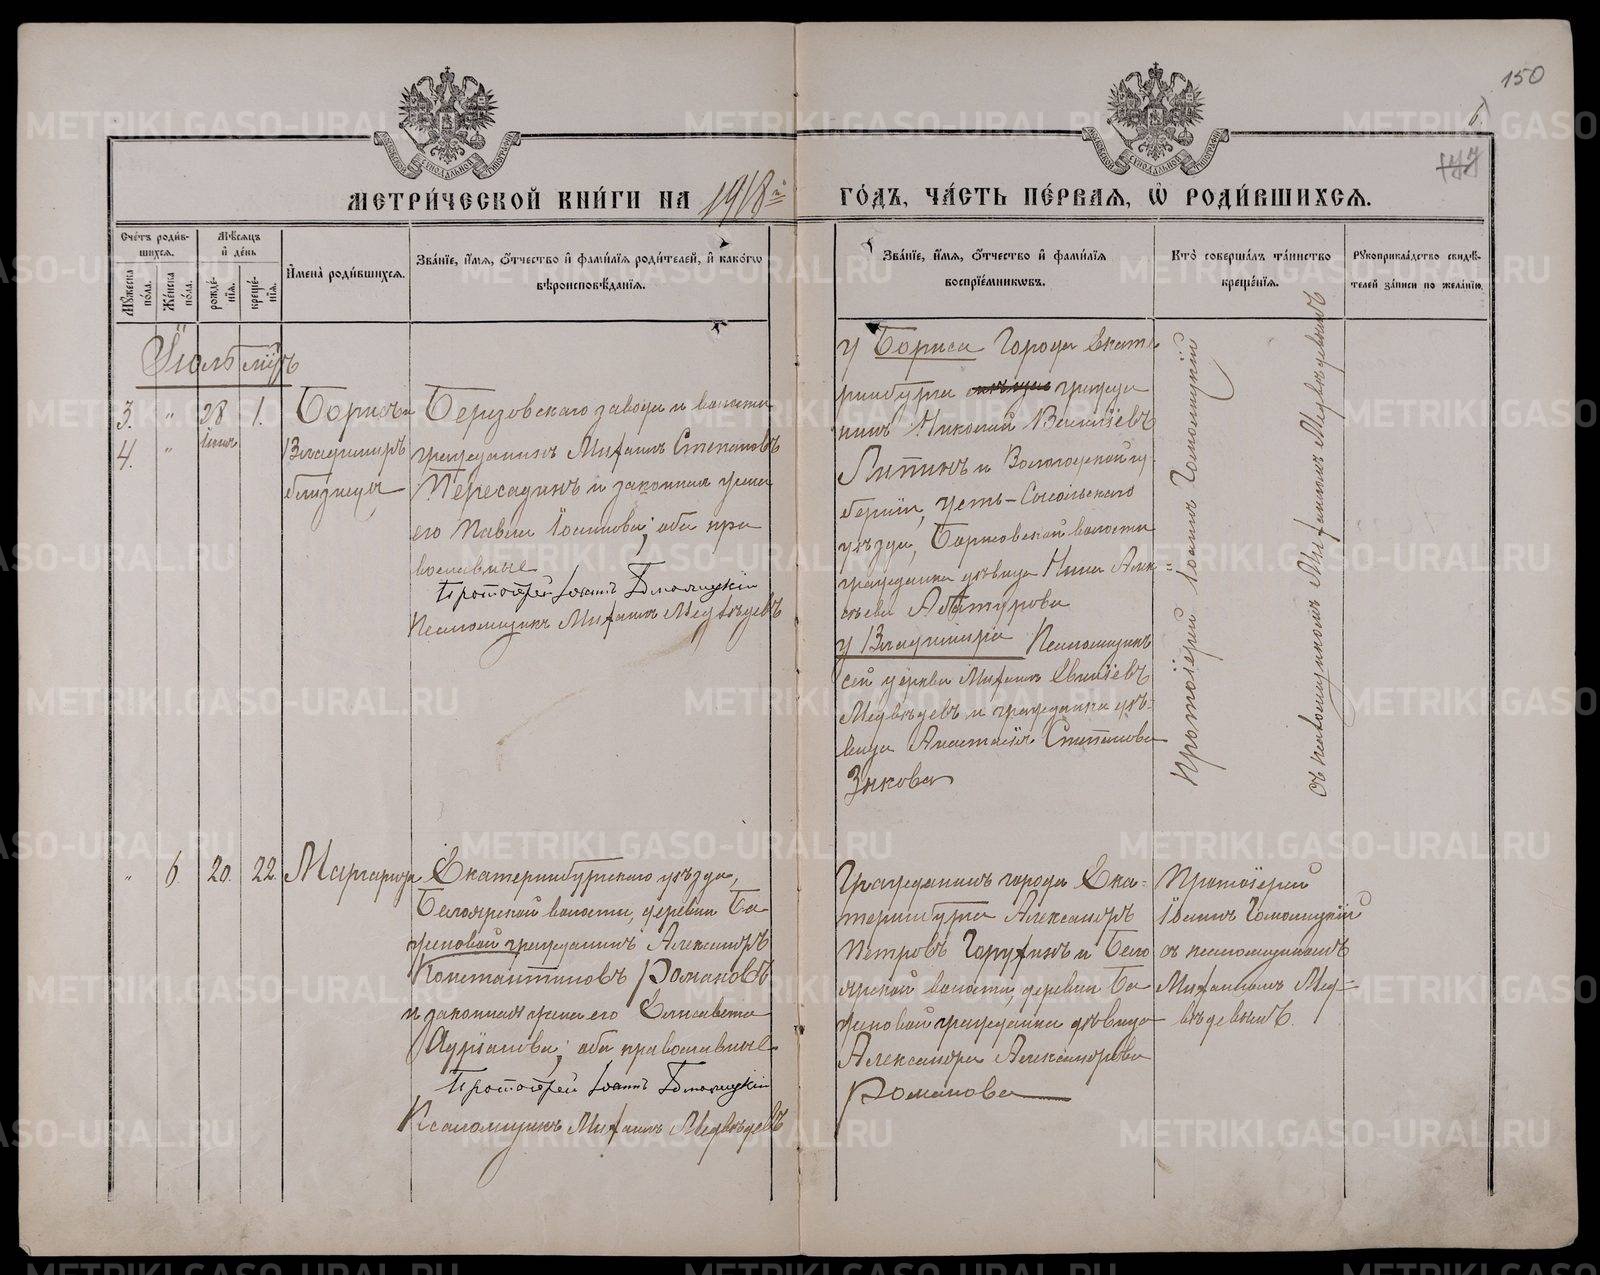 150
6.
177
МЕТРИ́ЧЕСКОЙ КНИ́ГИ НА 1918й ГО́ДЪ, ЧА́СТЬ ПЕ́РВАЯ, Ѡ РОДИ́ВШИХСЯ.
Сче́тъ роди́в-
шихся.
Мꙋ́жеска
по́ла.
Же́нска
по́ла.
Мѣ́сяцъ
и҆ де́нь
рожде́-
нїя.
креще́-
нїя.
И҆мена̀ роди́вшихся.
Зва́нїе, и҆́мя, ѻ҆́тчество и҆ фами́лїя роди́телей, и҆ како́гѡ
вѣроисповѣ́данїя.
Зва́нїе, и҆́мя, ѻ҆́тчество и҆ фами́лїя
воспрїе́мниковъ.
Кто̀ соверша́лъ та́инство
креще́нїя.
Рꙋкоприкла́дство свидѣ́-
телей за́писи по жела́нїю.
Іюль мцъ
3. " 28 1.
4. " іюня
Борисъ и
Владиміръ
близнецы
Березовскаго завода и волости
гражданинъ Михаилъ Степановъ
Пересадинъ и законная жена
его Павла Іосипова; оба пра
вославные
Протоіерей Іоаннъ Гомолицкій
Псаломщикъ Михаилъ Медвѣдевъ
у Бориса Города Екате
ринбурга гражда
нинъ Николай Василіевъ
Липинъ и Вологодской гу
берніи, Усть-Сысольскаго
уѣзда, Борисовской волости
гражданка дѣвица Нина Алек=
сѣева
у Владиміра Псаломщикъ
сей церкви Михаилъ Евгеніевъ
Медвѣдевъ и гражданка дѣ-
вица Анастасія Степанова
Зыкова
Протоіерей Іоаннъ Гомолицкій
съ псаломщикомъ Михаиломъ Медвѣдевымъ
" 6 20. 22. Маргарита
Екатеринбургскаго уѣзда,
Белоярской волости, деревни Ба
женовой гражданинъ Александръ
Константиновъ Романовъ
и законная жена его Елисавета
Адріанова; оба православные
Протоіерей Іоаннъ Гомолицкій
Псаломщикъ Михаилъ Медвѣдевъ
Гражданинъ города Ека=
теринбурга Александръ
Петровъ Горухинъ и Бело
ярской волости, деревни Ба
женовой гражданка дѣвица
Александра Александрова
Романова
Протоіерей
Іоаннъ Гомолицкій
съ псаломщикомъ
Михаиломъ Мед=
вѣдевымъ.
METRIKI.GASO-URAL.RU